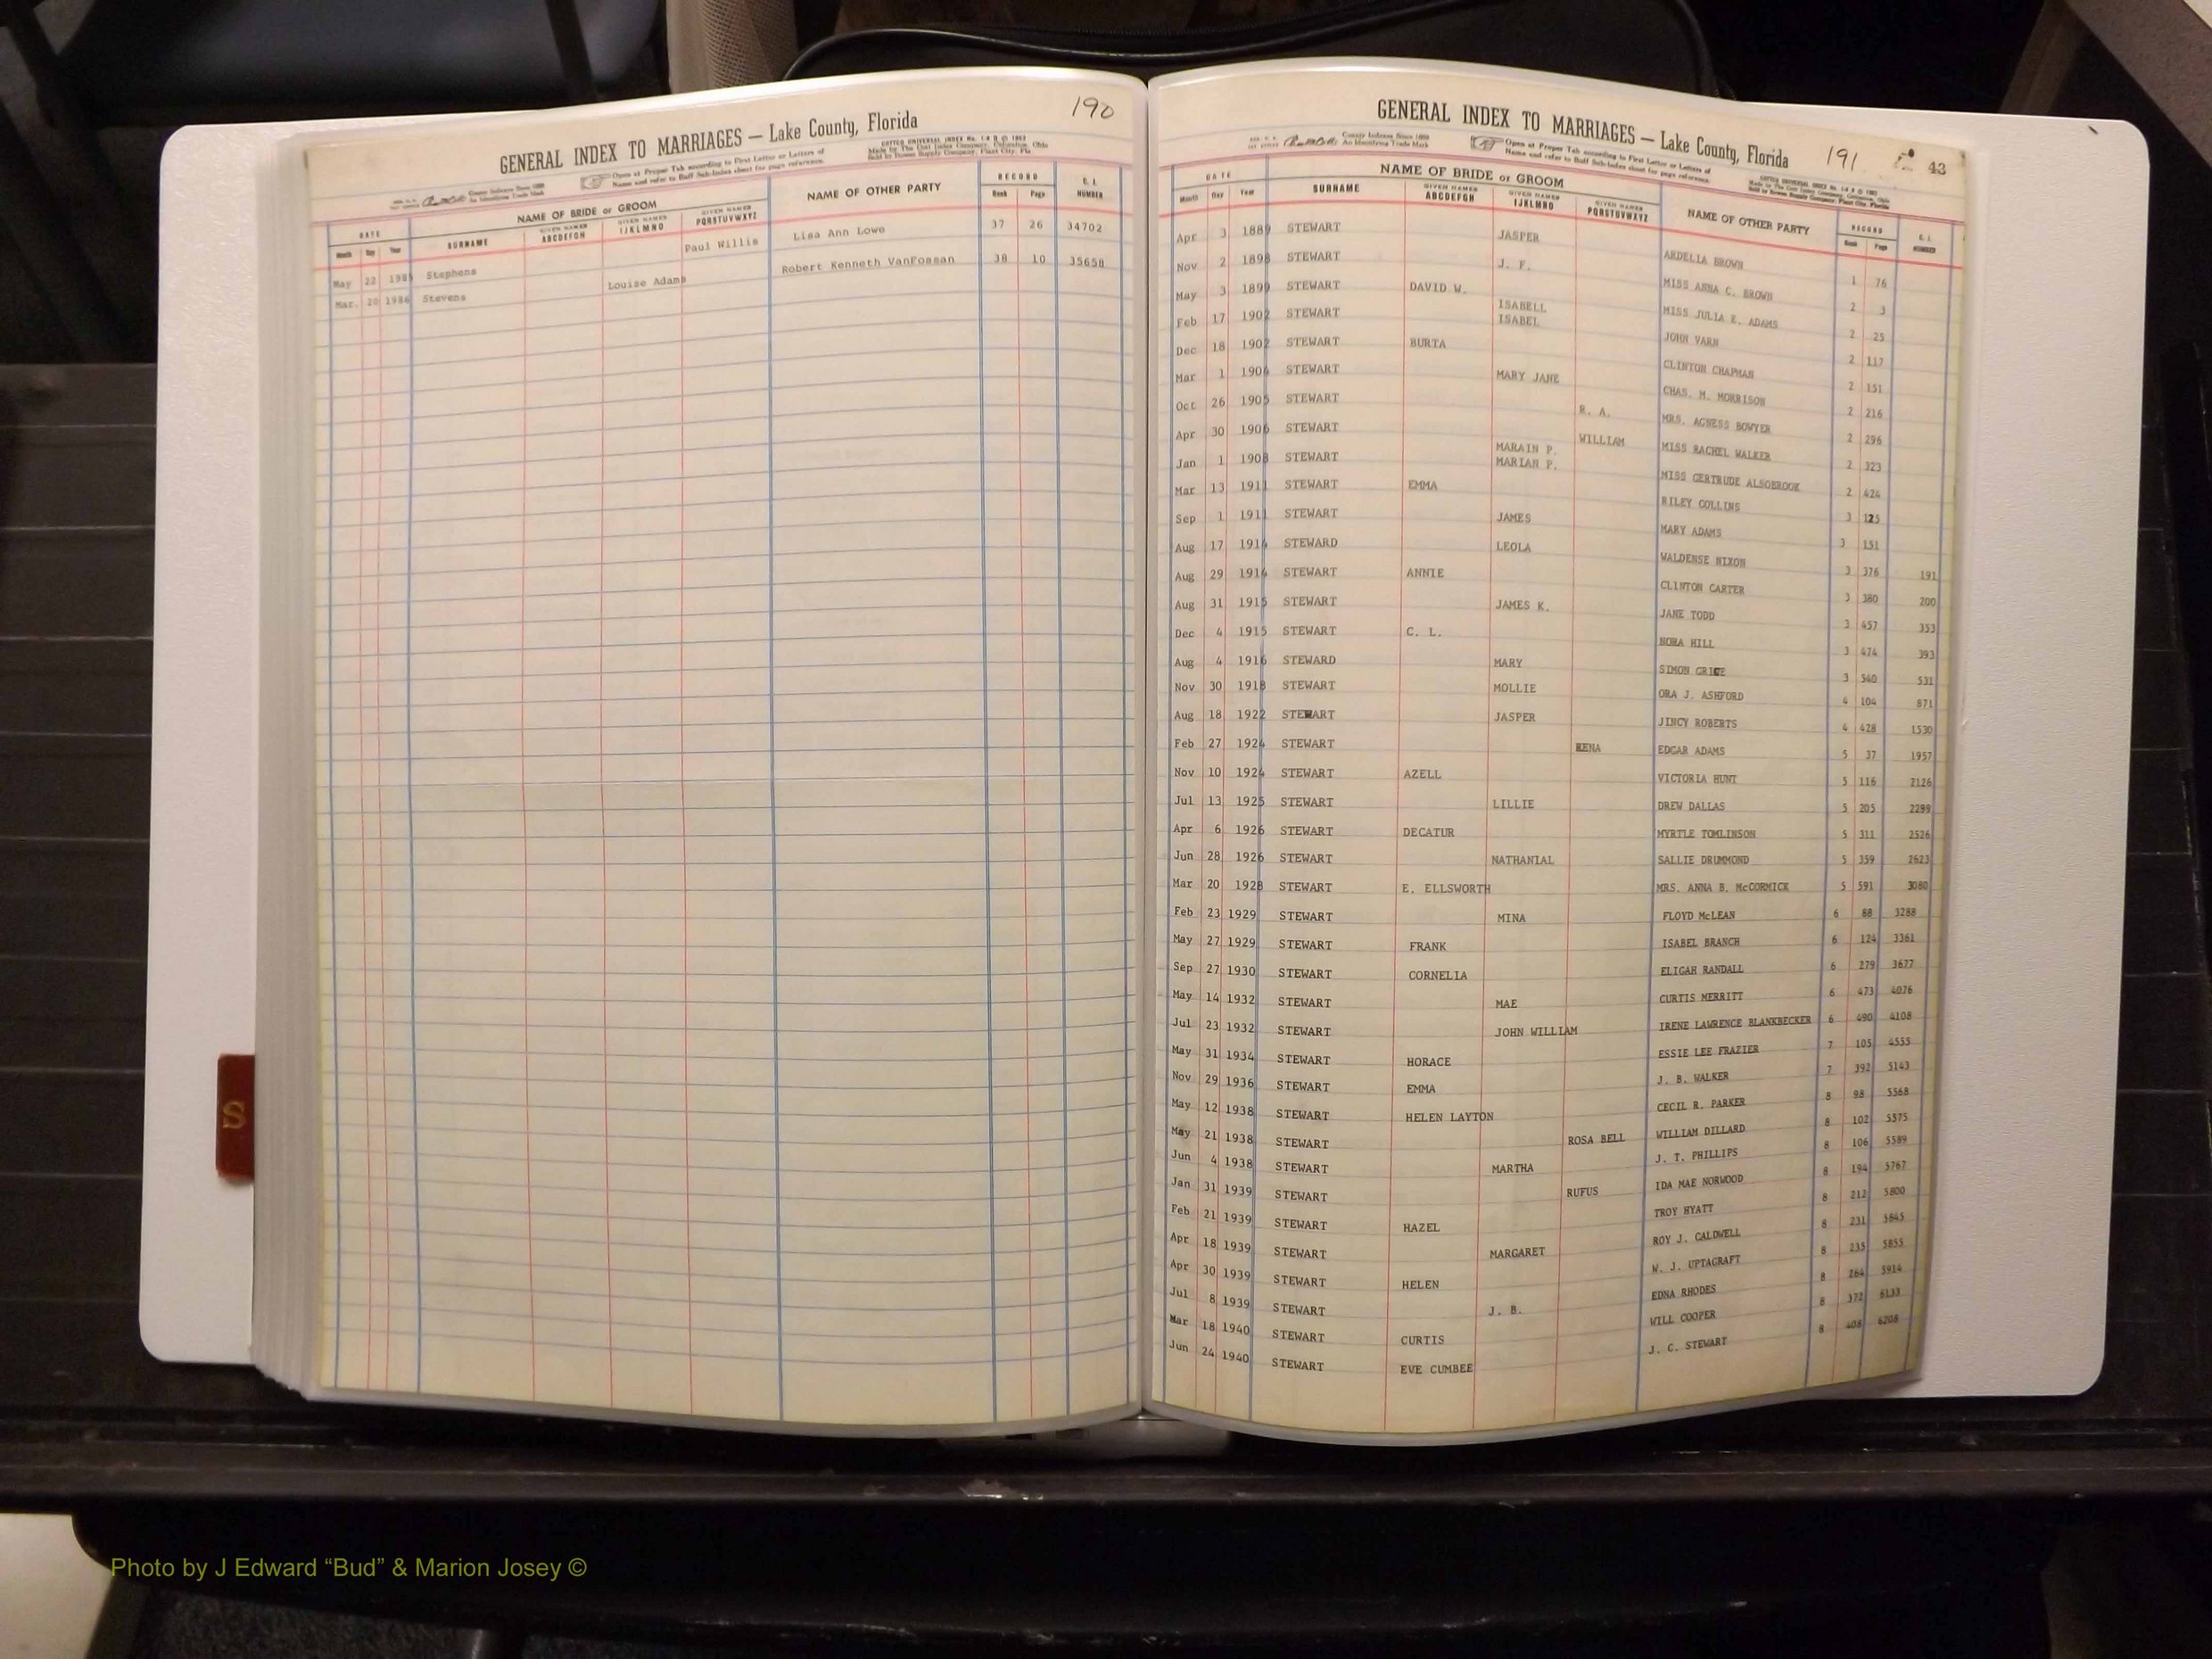 190
GENERAL INDEX TO MARRIAGES — Lake County, Florida
Open at Proper Tab according to First Letter or Letters of
Name and refer to Buff Sub-Index sheet for page reference.
DATE NAME OF BRIDE or GROOM NAME OF OTHER PARTY RECORD C. I.
Month Day Year SURNAME GIVEN NAMES ABCDEFGH GIVEN NAMES IJKLMNO GIVEN NAMES PQRSTUVWXYZ Book Page NUMBER
May 22 1985 Stephens Paul Willis Lisa Ann Lowe 37 26 34702
Mar. 20 1986 Stevens Louise Adams Robert Kenneth VanFossan 38 10 35658
S
GENERAL INDEX TO MARRIAGES — Lake County, Florida 191 43
County Indexes Since 1888
An Identifying Trade Mark
Open at Proper Tab according to First Letter or Letters of
Name and refer to Buff Sub-Index sheet for page reference.
DATE NAME OF BRIDE or GROOM NAME OF OTHER PARTY RECORD C. I.
Month Day Year SURNAME GIVEN NAMES ABCDEFGH GIVEN NAMES IJKLMNO GIVEN NAMES PQRSTUVWXYZ Book Page NUMBER
Apr 3 1889 STEWART JASPER ARDELIA BROWN 1 76
Nov 2 1898 STEWART J. F. MISS ANNA C. BROWN 2 3
May 3 1899 STEWART DAVID W. MISS JULIA E. ADAMS 2 25
Feb 17 1902 STEWART ISABELL ISABEL JOHN VARN 2 117
Dec 18 1902 STEWART BURTA CLINTON CHAPMAN 2 151
Mar 1 1904 STEWART MARY JANE CHAS. M. MORRISON 2 216
Oct 26 1905 STEWART R. A. MRS. AGNESS BOWYER 2 296
Apr 30 1906 STEWART WILLIAM MISS RACHEL WALKER 2 323
Jan 1 1908 STEWART MARAIN P. MARIAN P. MISS GERTRUDE ALSOBROOK 2 424
Mar 13 1911 STEWART EMMA RILEY COLLINS 3 125
Sep 1 1911 STEWART JAMES MARY ADAMS 3 151
Aug 17 1914 STEWARD LEOLA WALDENSE NIXON 3 376 191
Aug 29 1914 STEWART ANNIE CLINTON CARTER 3 380 200
Aug 31 1915 STEWART JAMES K. JANE TODD 3 457 353
Dec 4 1915 STEWART C. L. NORA HILL 3 474 393
Aug 4 1916 STEWARD MARY SIMON GRICE 3 540 531
Nov 30 1918 STEWART MOLLIE ORA J. ASHFORD 4 104 871
Aug 18 1922 STEWART JASPER JINCY ROBERTS 4 428 1530
Feb 27 1924 STEWART RENA EDGAR ADAMS 5 37 1957
Nov 10 1924 STEWART AZELL VICTORIA HUNT 5 116 2126
Jul 13 1925 STEWART LILLIE DREW DALLAS 5 205 2299
Apr 6 1926 STEWART DECATUR MYRTLE TOMLINSON 5 311 2526
Jun 28 1926 STEWART NATHANIAL SALLIE DRUMMOND 5 359 2623
Mar 20 1928 STEWART E. ELLSWORTH MRS. ANNA B. McCORMICK 5 591 3080
Feb 23 1929 STEWART MINA FLOYD McLEAN 6 88 3288
May 27 1929 STEWART FRANK ISABEL BRANCH 6 124 3361
Sep 27 1930 STEWART CORNELIA ELIGAH RANDALL 6 279 3677
May 14 1932 STEWART MAE CURTIS MERRITT 6 473 4076
Jul 23 1932 STEWART JOHN WILLIAM IRENE LAWRENCE BLANKBECKER 6 490 4108
May 31 1934 STEWART HORACE ESSIE LEE FRAZIER 7 105 4555
Nov 29 1936 STEWART EMMA J. B. WALKER 7 392 5143
May 12 1938 STEWART HELEN LAYTON CECIL R. PARKER 8 98 5568
May 21 1938 STEWART ROSA BELL WILLIAM DILLARD 8 102 5575
Jun 4 1938 STEWART MARTHA J. T. PHILLIPS 8 106 5589
Jan 31 1939 STEWART RUFUS IDA MAE NORWOOD 8 194 5767
Feb 21 1939 STEWART HAZEL TROY HYATT 8 212 5800
Apr 18 1939 STEWART MARGARET ROY J. CALDWELL 8 231 5845
Apr 30 1939 STEWART HELEN W. J. UPTAGRAFT 8 235 5855
Jul 8 1939 STEWART J. B. EDNA RHODES 8 264 5914
Mar 18 1940 STEWART CURTIS WILL COOPER 8 372 6133
Jun 24 1940 STEWART EVE CUMBEE J. C. STEWART 8 408 6208
Photo by J Edward “Bud” & Marion Josey ©